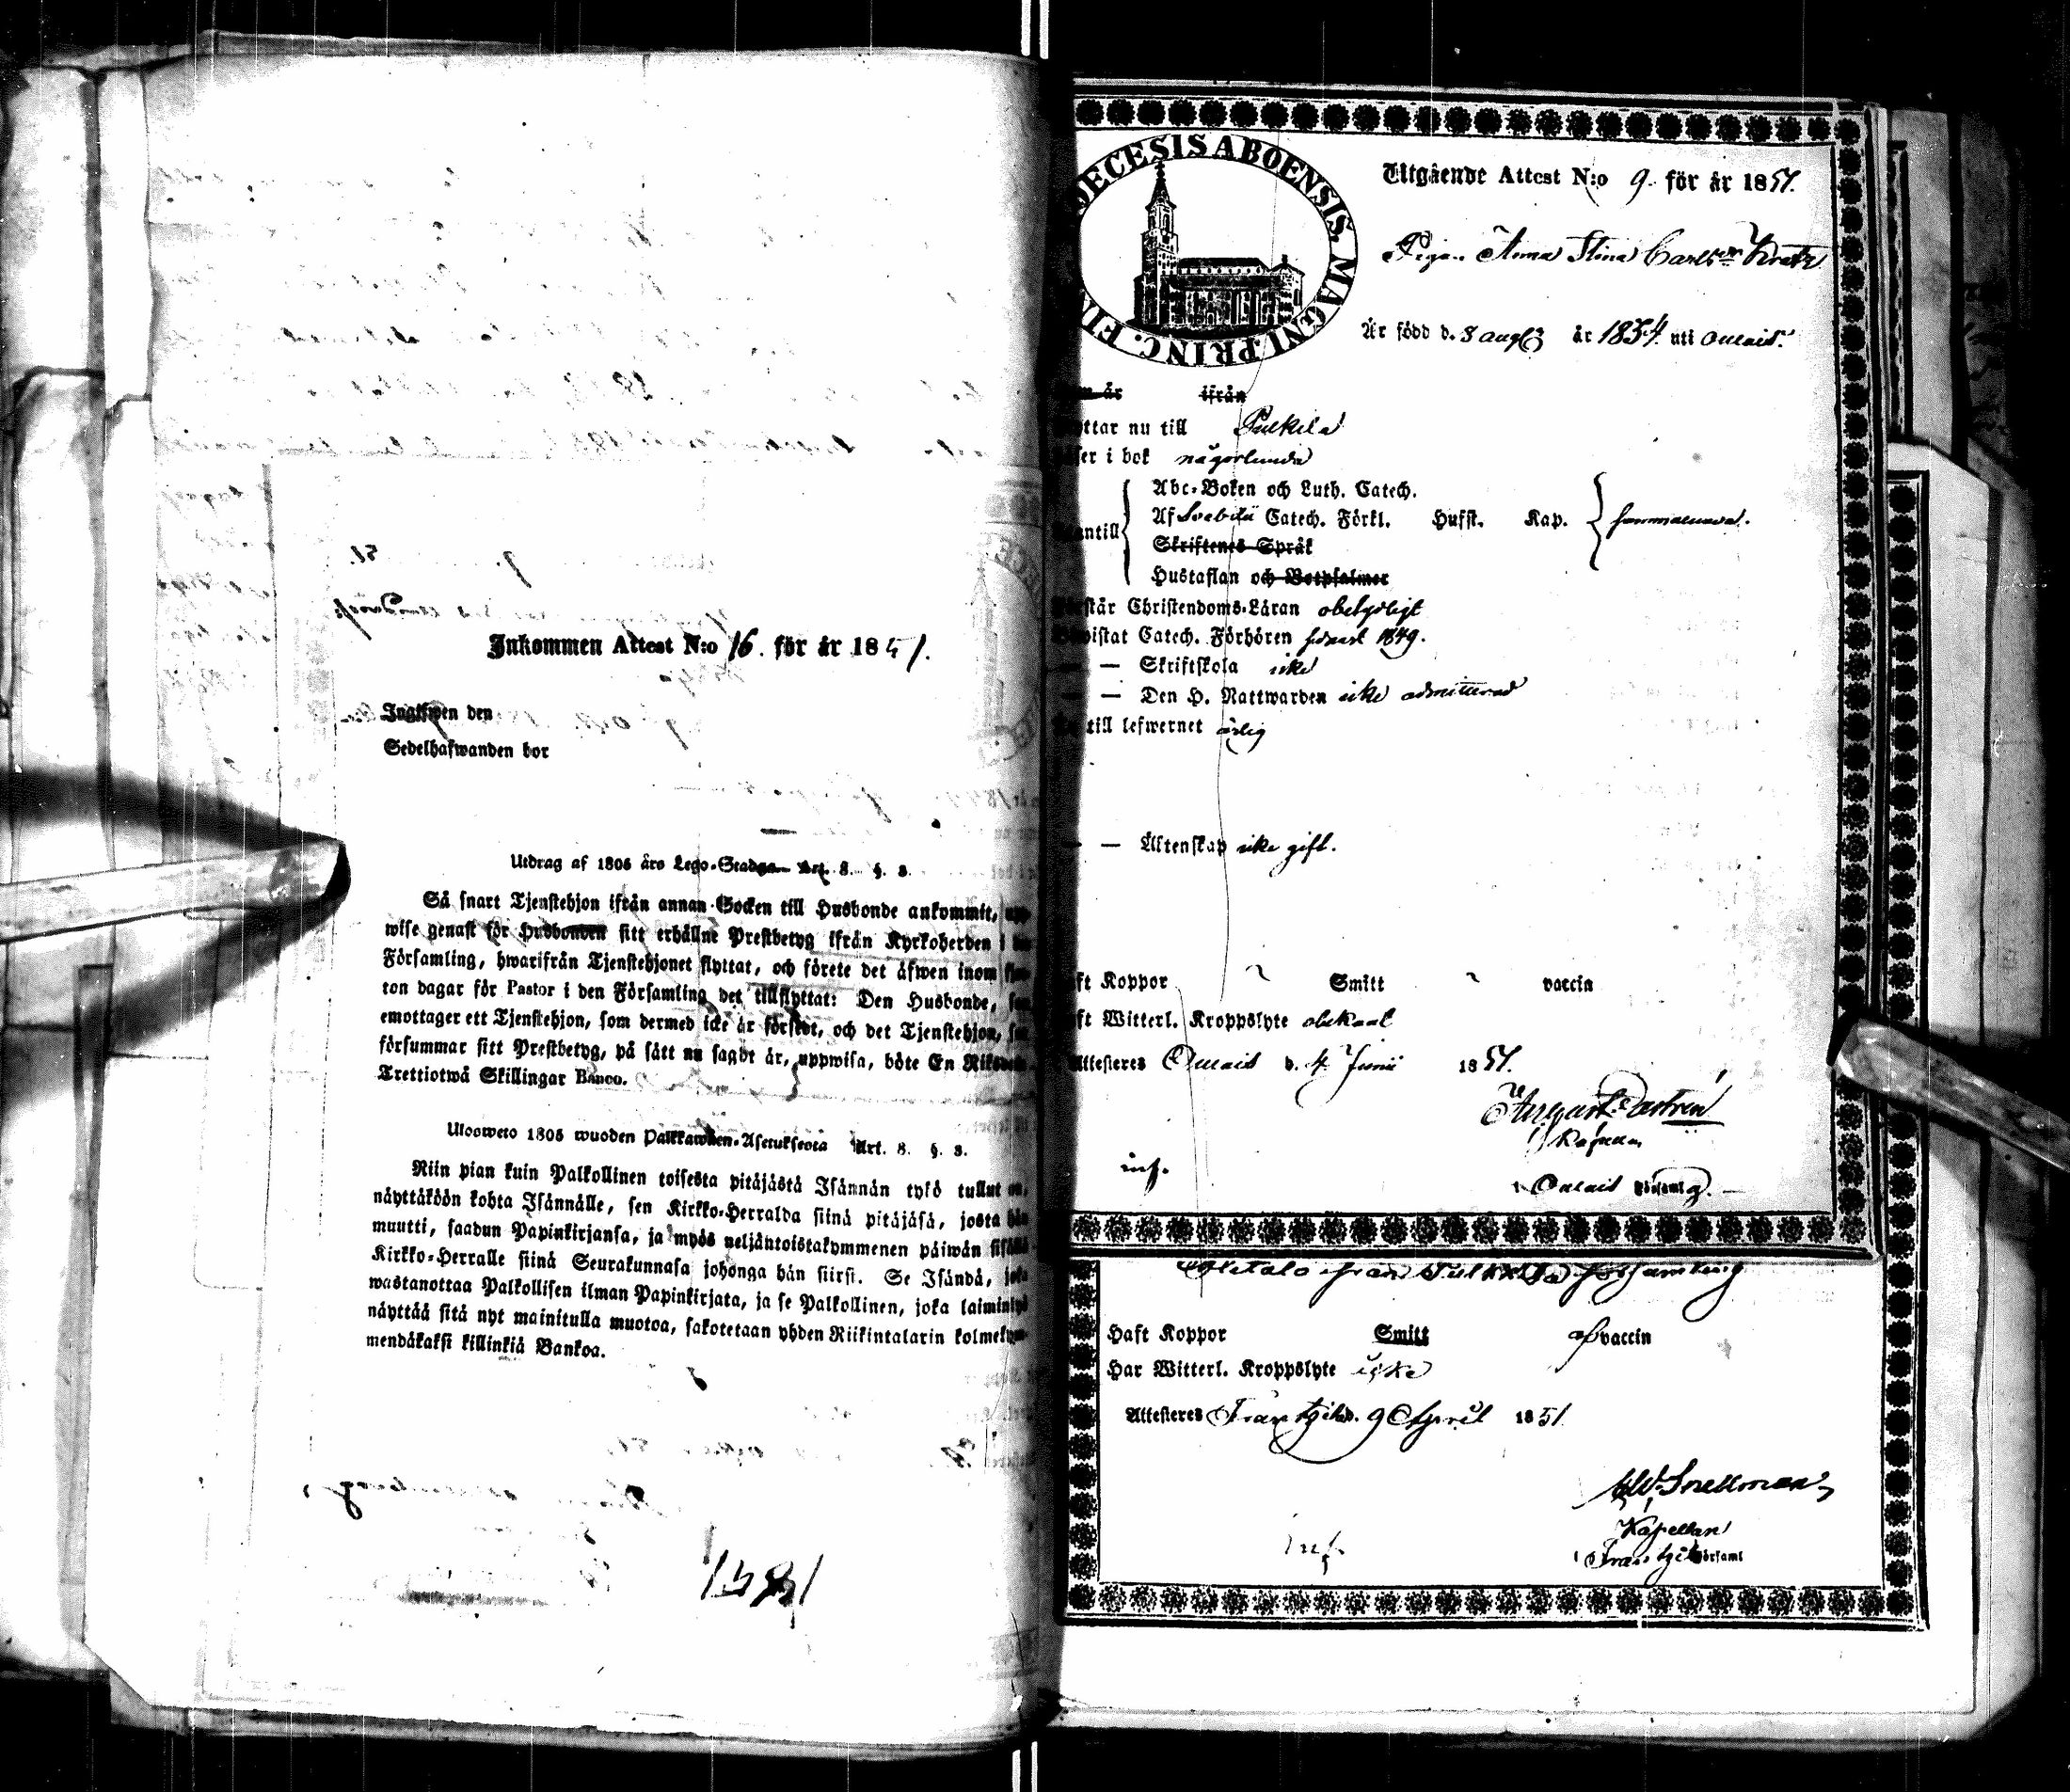 Inkommen Attest N:o 16. för år 1851.
Ingifwen den
Sedelhafwanden bor
Utdrag af 1805 års Lego-Stadga Art. 8. §. 3.
Så snart Tjenstehjon ifrån annan Socken till Husbonde ankommit, upp
wise genast för Husbonden sitt erhållne Prestbetyg ifrån Kyrkoherden i
Församling, hwarifrån Tjenstehjonet flyttat, och förete det äfwen inom
ton dagar för Pastor i den Församling det tillflyttat: Den Husbonde,
emottager ett Tjenstehjon, som dermed icke är försedt, och det Tjenstehjon,
försummar sitt Prestbetyg, på sätt nu sagdt är, uppwisa, böte En
Trettiotwå Skillingar Banco.
Ulosweto 1805 wuoden Palkkawäen-Asetuksesta Art. 8. §. 3.
Niin pian kuin Palkollinen toisesta pitäjästä Isännän tykö tullut on,
näyttäköön kohta Isännälle, sen Kirkko-Herralda siinä pitäjäsä, josta hän
muutti, saadun Papinkirjansa, ja myös neljäntoistakymmenen päiwän
Kirkko-Herralle siinä Seurakunnasa johonga hän siirsi. Se Isändä, joka
wastanottaa Palkollisen ilman Papinkirjata, ja se Palkollinen, joka
näyttää sitä nyt mainitulla muotoa, sakotetaan yhden Riikintalarin
mendäkaksi killinkiä Bankoa.
1851
DECESIS ABOENSIS, MAGNI PRINC.
Utgående Attest N:o 9. för år 1851.
Pigan Anna Stina Carlsdr Kratz
Är född d. 8 aug år 1834 uti Oulais
är ifrån
ttar nu till Pulkila
ser i bok någorlunda
antill
Abc-Boken och Luth. Catech.
Af Svebilii Catech. Förkl. Husst. Kap. sammalunda.
Skriftenes Språk
Hustaflan och Botpsalmer
Förstår Christendoms-Läran obetydligt
Bewistat Catech. Förhören sednast 1849.
— — Skriftskola icke
— — Den H. Nattwarden icke admitterad
till lefwernet ärlig
— — Äktenskap icke gift.
ft Koppor ~ Smitt ~ vaccin
ft Witterl. Kroppslyte obekant
Attesteres Oulais d. 4 Junii 1851.
August Castrén
Kapellan
i Oulais Församlg.
inf.
från Pulkkila församling
Haft Koppor Smitt af vaccin
Har Witterl. Kroppslyte icke
Attesteres Frantzila d. 9 April 1851.
Snellman
Kapellan
i Frantzila Församl
inf.